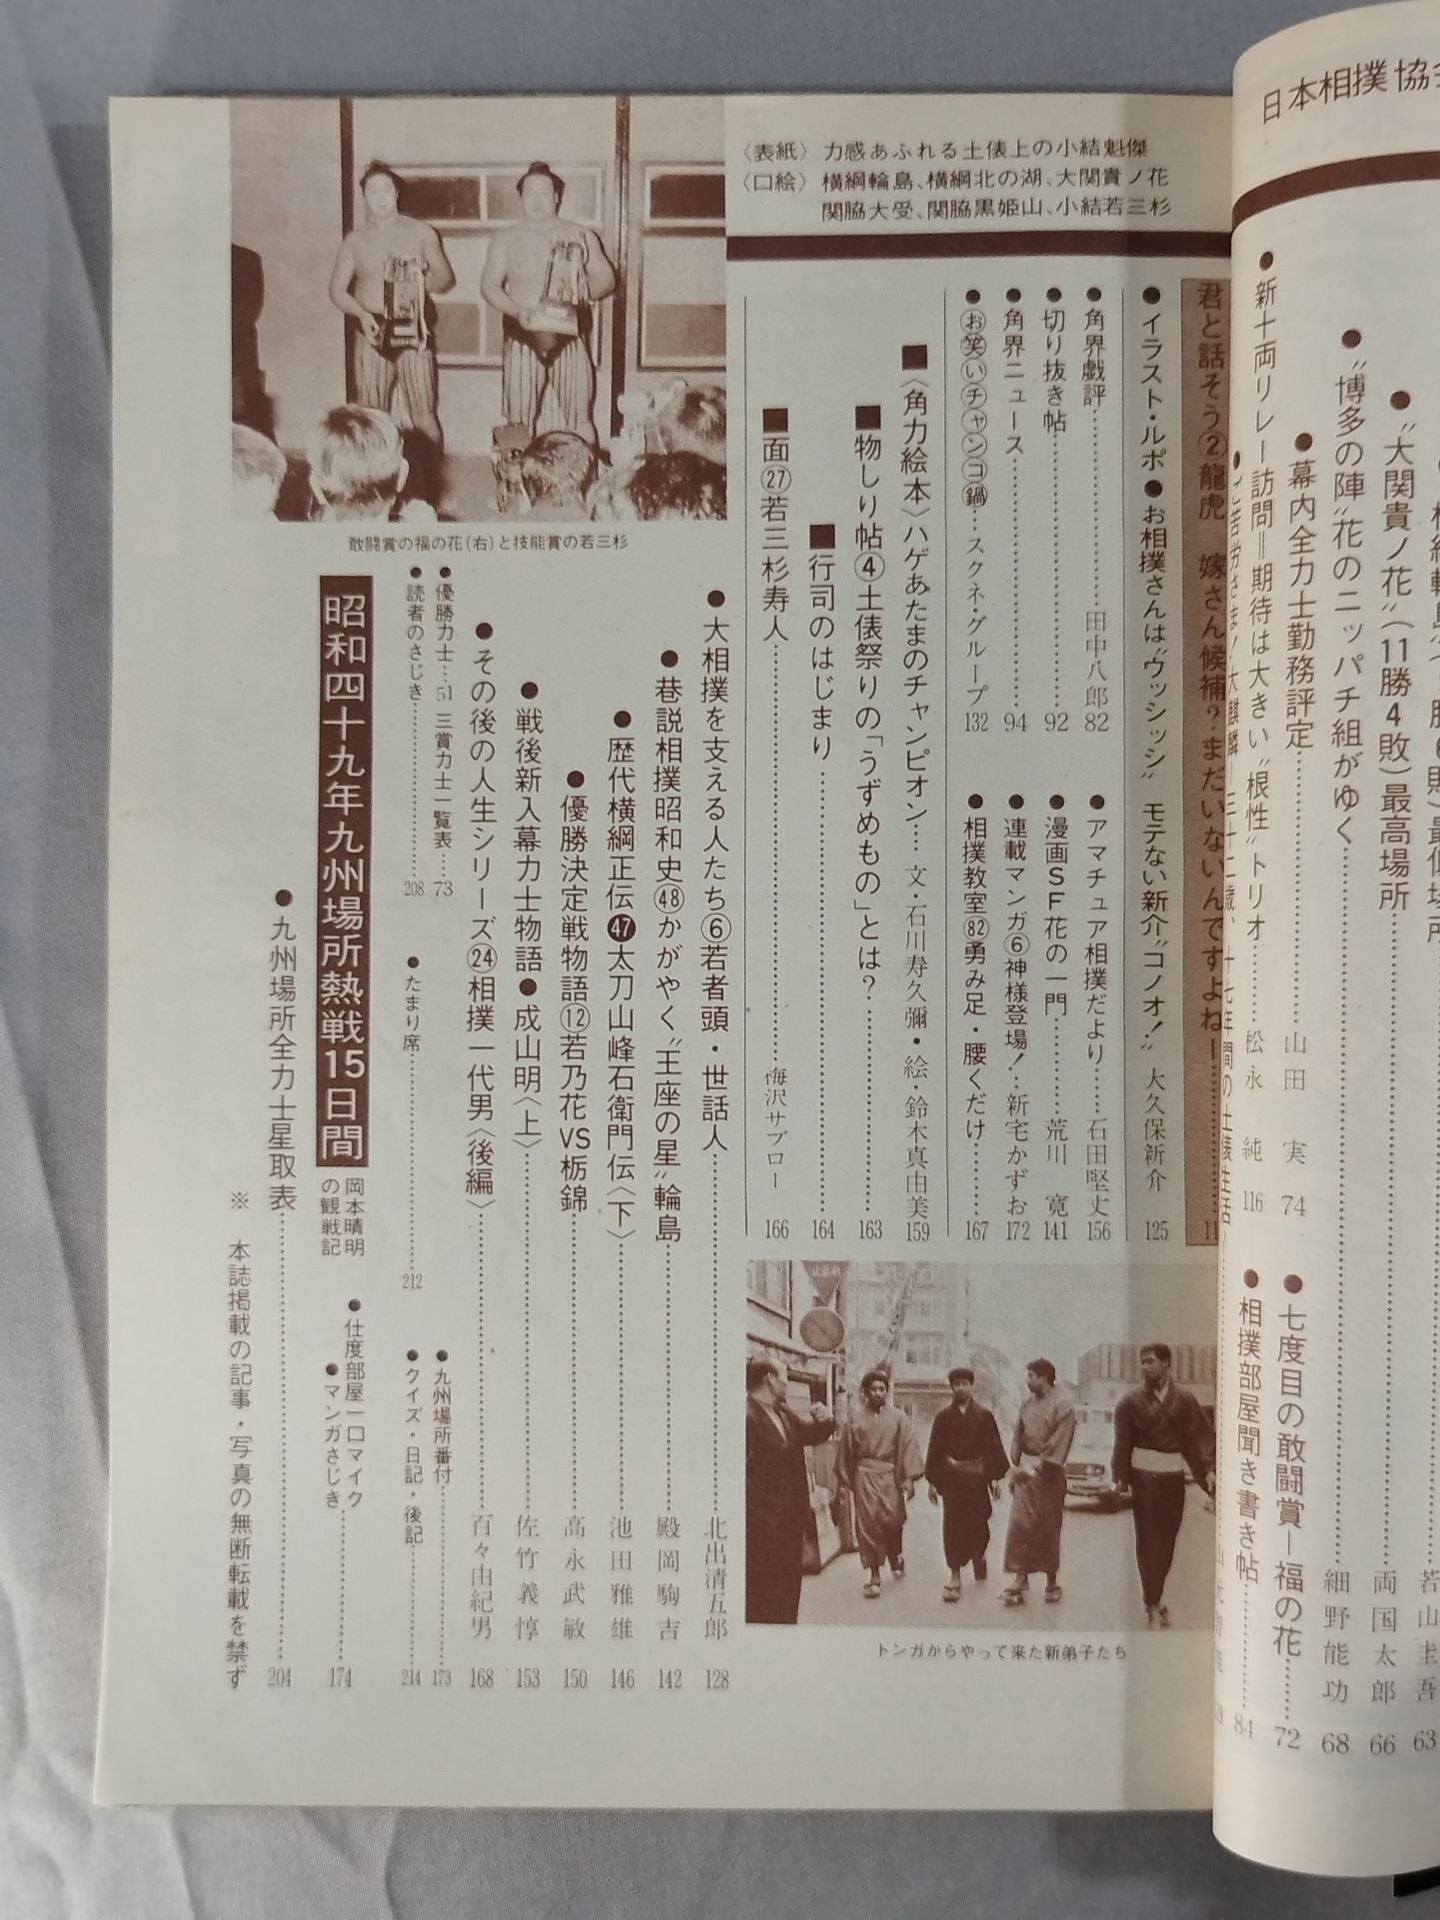 日本相撲協
〈表紙〉力感あふれる土俵上の小結魁傑
〈口絵〉横綱輪島、横綱北の湖、大関貴ノ花
関脇大受、関脇黒姫山、小結若三杉
●“大関貴ノ花”(11勝4敗)最高場所
両国太郎 66
若山圭吾 63
●“博多の陣”花のニッパチ組がゆく
細野能功 68
●幕内全力士勤務評定
山田 実 74
●七度目の敢闘賞―福の花 72
●新十両リレー訪問=期待は大きい“根性”トリオ
松永 純 116
●相撲部屋聞き書き帖 84
●ご苦労さま!大麒麟―三十二歳、十七年間の土俵生活
君と話そう②龍虎 嫁さん候補?まだいないんですよねー
●イラスト・ルポ●お相撲さんは“ウッシッシ” モテない新介“コノオ!” 大久保新介 125
●角界戯評 田中八郎 82
●アマチュア相撲だより 石田堅丈 156
●切り抜き帖 92
●漫画SF花の一門 荒川 寛 141
●角界ニュース 94
●連載マンガ⑥神様登場! 新宅かずお 172
●お笑いチャンコ鍋 スクネ・グループ 132
●相撲教室82勇み足・腰くだけ 167
■〈角力絵本〉ハゲあたまのチャンピオン 文・石川寿久彌・絵・鈴木真由美 159
■物しり帖④土俵祭りの「うずめもの」とは? 163
■行司のはじまり 164
■面㉗若三杉寿人 梅沢サブロー 166
トンガからやって来た新弟子たち
敢闘賞の福の花(右)と技能賞の若三杉
●大相撲を支える人たち⑥若者頭・世話人 北出清五郎 128
●巷説相撲昭和史㊽かがやく“王座の星”輪島 殿岡駒吉 142
●歴代横綱正伝㊼太刀山峰右衛門伝〈下〉 池田雅雄 146
●優勝決定戦物語⑫若乃花VS栃錦 高永武敏 150
●戦後新入幕力士物語●成山明〈上〉 佐竹義惇 153
●その後の人生シリーズ㉔相撲一代男〈後編〉 百々由紀男 168
●優勝力士 51 三賞力士一覧表 73
●九州場所番付 173
●読者のさじき 208
●たまり席 212
●クイズ・日記・後記 214
昭和四十九年九州場所熱戦15日間
岡本晴明
の観戦記
●仕度部屋一口マイク
●マンガさじき 174
●九州場所全力士星取表 204
※ 本誌掲載の記事・写真の無断転載を禁ず